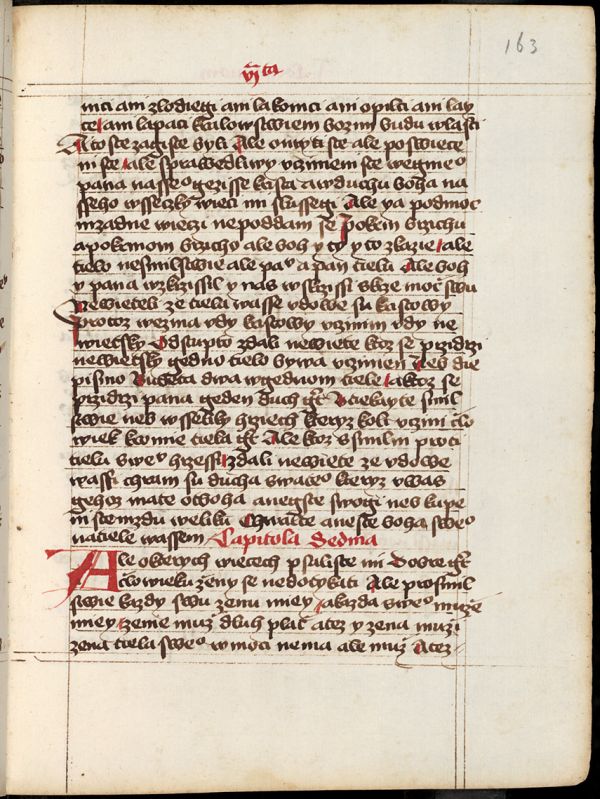 163
vj ta
nici ani zlodiegi ani lakomci ani opilci ani lay
ce ani lapaci kralowstwiem bozim budu wlasti
A to ste zagiste byli Ale omyti ste ale poswiece
ni ste ale sprawedliwy vczinieni ste wegmeo
pana nasseo gezisse krista a wduchu boha na
sseho wsseczky wieci mi slussegi Ale ya podmoc
nizadne wieczi nepoddam se Pokrm brzichu
a pokrmom brzicho ale boh y ty y to zkazie ale
tielo ne smilstwie ale pau a pan tielu Ale boh
y pana wzkrziesil y nas wskrziesi skrze moc swu
Newiete li ze tiela wasse vdowe su kristowy
Protoz wezma vdy kristowy vczinim vdy ne
wiestky Odstup to zdali newiete ktoz se przidrzi
newiestky gedno tielo bywa vczinien Neb die
pismo Budeta dwa wgednom tiele a ktoz se
przidrzi pana geden duch gt Vtiekayte smil
stwie neb wsseliky hrziech kteryz koli vczini clo
wiek kromie tiela gt Ale ktoz smilni proti
tielu sweu hrzessi zdali newiete ze vdowe
wassi chram su ducha swateo kteryz vwas
gehoz mate otboha a negste swogi neb kupe
ni ste mzdu weliku Chwalte a neste boha sweo
natiele wassem Capitola Sedma
Ale okterych wiecech psaliste mi Dobre gt
clowieku zeny se nedotykati Ale pro smil
stwie kazdy swu zenu miey a kazda sweo muze
miey zenie muz dluh plat a tez y zena muzi
zena tiela sweo w moci nema ale muz A tez